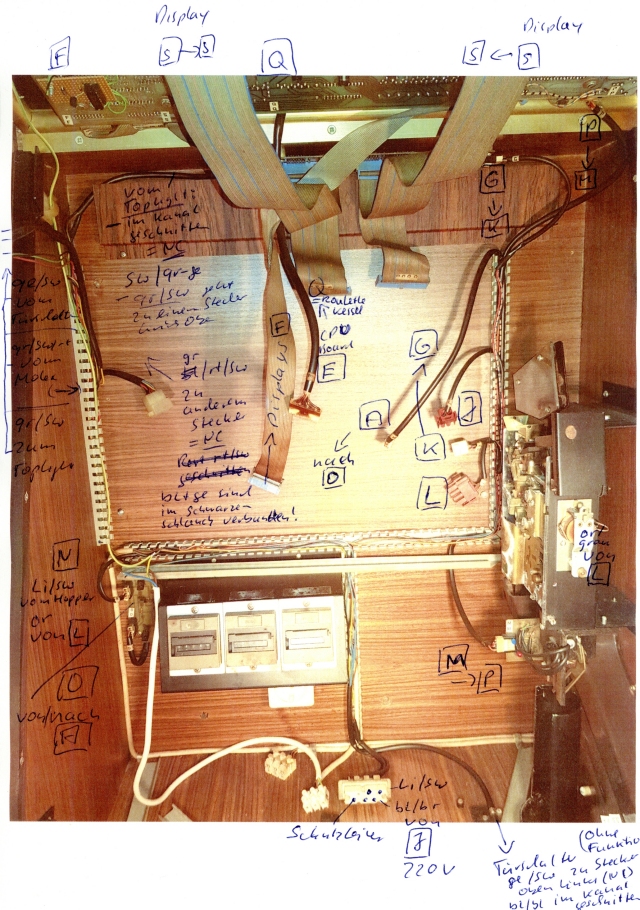 Display
Display
F
S → S
Q
S ← S
P
↓
H
G
↓
K
vom
Toplight:
im Kanal
geschnitten
= NC
SW/gr-ge
- gr/sw geht
zu einem Stecker
ge/sw
vom
gr/sw/rt
vom
Molex
gr/sw
zum
Toplight
gr
/rt/sw
zu
anderem
Stecker
= NC
bl+ge sind
im schwarzen
schlauch verbunden!
F
Displays
Q
= Roulette
Kessel
CPU
Board
E
G
K
A
nach
O
J
K
L
or
grau
von
L
N
Li/sw
vom Hopper
or
von L
O
von/nach
A
M
→ P
Li/sw
bl/br
von
J
220V
Schutzleiter
Türschalter
(ohne
Funktio
ge/sw zu Stecker
oben links (NC)
bl/bl im Kanal
geschnitten